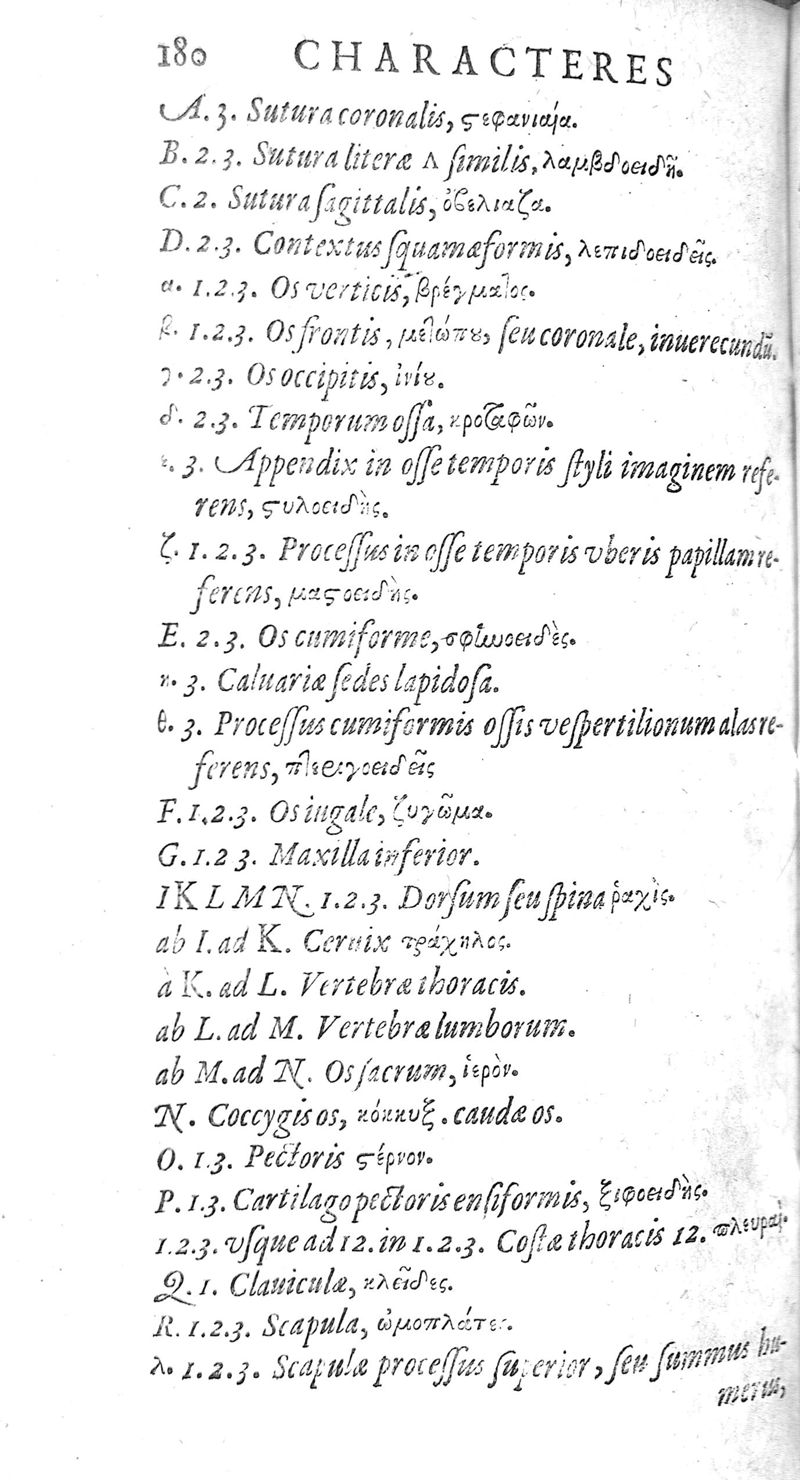 180 CHARACTERES
A. 3. Sutura coronalis, ςεφανιαία.
B. 2. 3. Sutura literæ Λ ſimilis, λαμβδοειδῆ.
C. 2. Sutura ſagittalis, ὀβελιαζα.
D. 2. 3. Contextus ſquamæformis, λεπιδοειδεῖς.
α. 1. 2. 3. Os verticis, βρέγμαῖος.
β. 1. 2. 3. Os frontis, μεῖώπȣ, ſeu coronale, inuerecundū.
γ. 2. 3. Os occipitis, ἰνίȣ.
δ. 2. 3. Temporum oſſa, κροταφῶν.
ε. 3. Appendix in oſſe temporis ſtyli imaginem refe-
rens, ςυλοειδὴς.
ζ. 1. 2. 3. Proceſſus in oſſe temporis vberis papillam re-
ferens, μαςοειδὴς.
E. 2. 3. Os cumiforme, σφηνοειδὲς.
η. 3. Caluariæ ſedes lapidoſa.
θ. 3. Proceſſus cumiformis oſſis veſpertilionum alas re-
ferens, πτερυγοειδεῖς
F. 1. 2. 3. Os iugale, ζυγῶμα.
G. 1. 2 3. Maxilla inferior.
I K L M N. 1. 2. 3. Dorſum ſeu ſpina ῥαχὶς.
ab I. ad K. Ceruix τράχηλος.
à K. ad L. Vertebræ thoracis.
ab L. ad M. Vertebræ lumborum.
ab M. ad N. Os ſacrum, ἱερὸν.
N. Coccygis os, κόκκυξ. caudæ os.
O. 1. 3. Pectoris ςέρνον.
P. 1. 3. Cartilago pectoris enſiformis, ξιφοειδὴς.
1. 2. 3. vſque ad 12. in 1. 2. 3. Coſtæ thoracis 12. πλευραὶ.
Q. 1. Clauiculæ, κλεῖδες.
R. 1. 2. 3. Scapula, ὠμοπλάτες.
λ. 1. 2. 3. Scapulæ proceſſus ſuperior, ſeu ſummus hu-
merus,